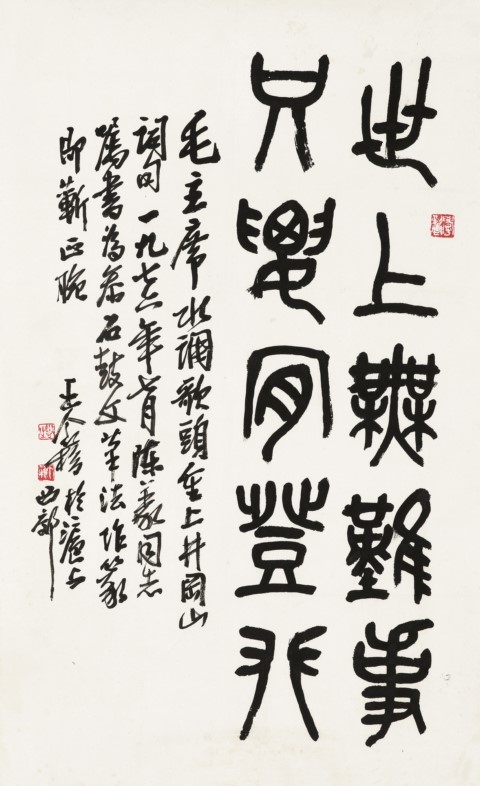 世上無難事
只要肯登攀
毛主席水調歌頭重上井岡山
詞句一九七六年七月陈義同志
属書為参石鼓文筆法作篆
即蘄正腕
王个簃於滬上西郊